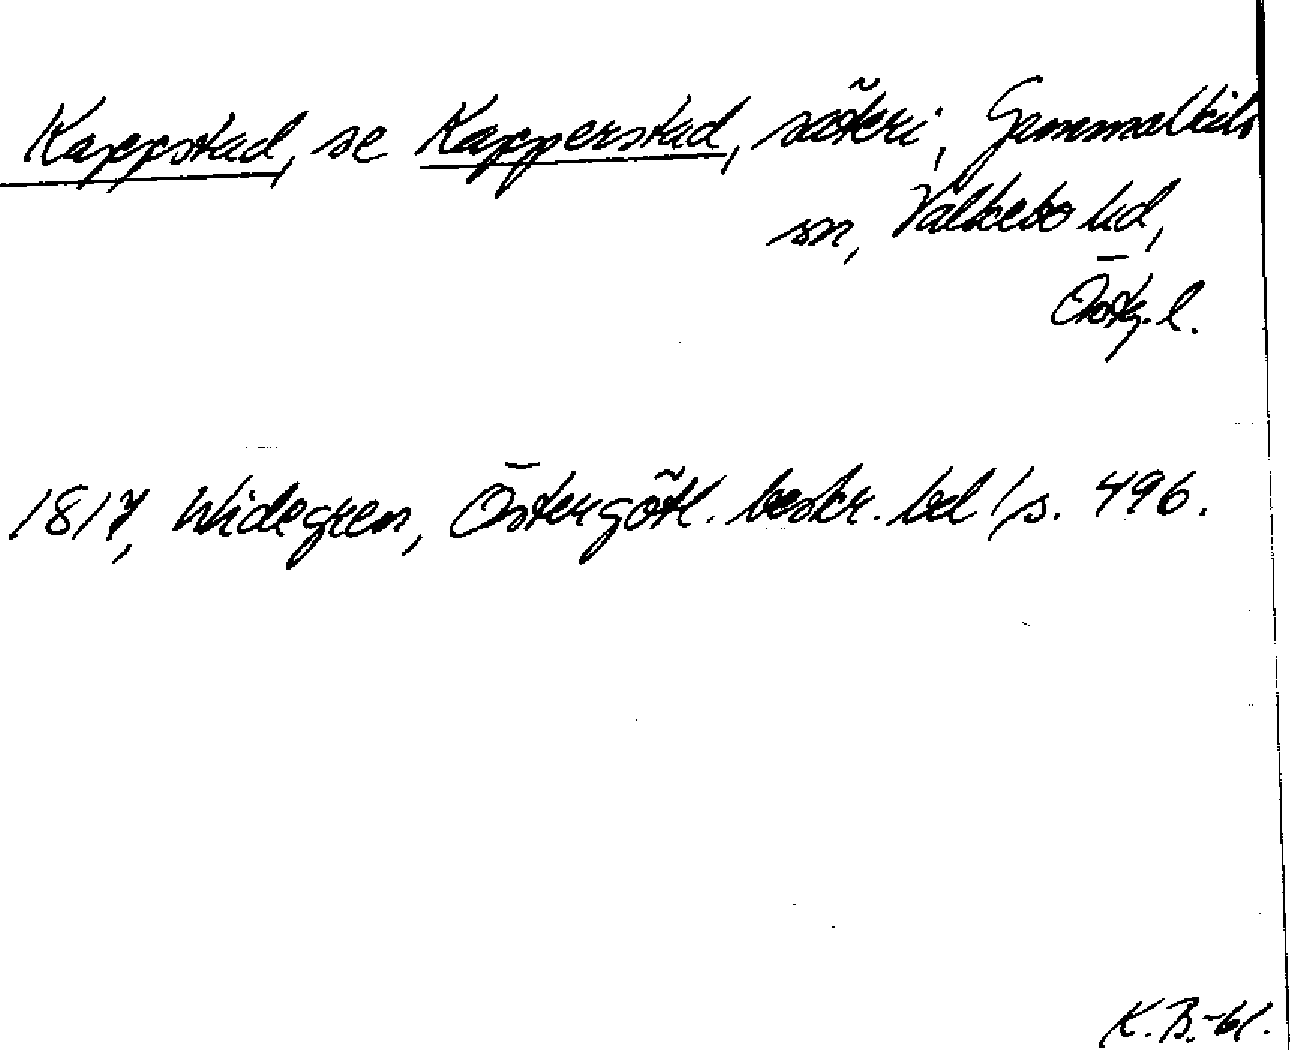 Kappstad, se Kapperstad, säteri, Gammalkils
sn, Valkebo hd,
Östg. l.
1817, Widegren, Östergötl. beskr. bd 1, s. 496.
K. B.-bl.